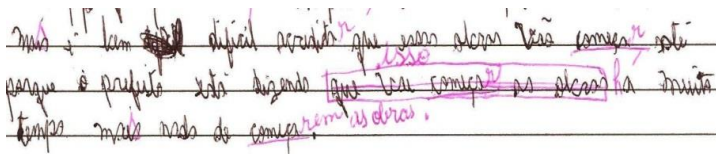 mais é bem difícil acreditar que essas obras vão começar até
isso
porque o prefeito está dizendo que vai começar as obras há muito
tempo mais nada de começarem as obras.